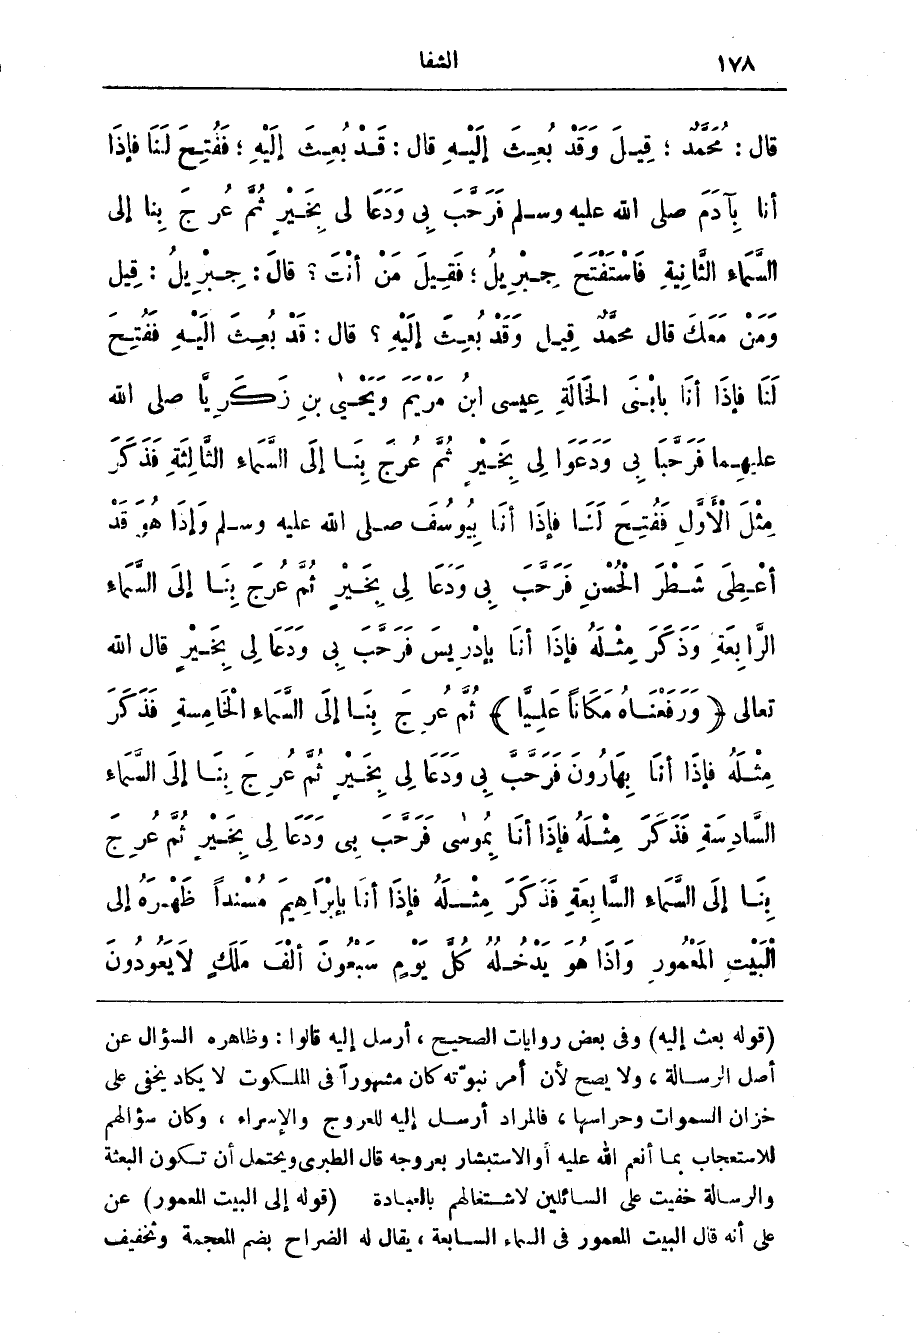 ١٧٨ الشفا
قال : مُحَمَّدٌ ؛ قِيلَ وَقَدْ بُعِثَ إِلَيْهِ قال : قَدْ بُعِثَ إِلَيْهِ ؛ فَفُتِحَ لَنَا فإذَا
أنا بِآدَمَ صلى الله عليه وسلم فَرَحَّبَ بِى وَدَعَا لى بِخَيْرٍ ثُمَّ عُرِجَ بِنا إلى
السَّمَاءِ الثَّانِيةِ فَاسْتَفْتَحَ جِبْرِيلُ ؛ فَقِيلَ مَنْ أنْتَ ؟ قالَ : جِبْرِيلُ : قِيل
وَمَنْ مَعَكَ قال محمَّدٌ قِيل وَقَدْ بُعِثَ إلَيْهِ ؟ قال : قَدْ بُعِثَ الَيْهِ فَفُتِحَ
لَنَا فإذَا أنَا بابْنَى الخَالَةِ عِيسى ابنُ مَرْيَمَ وَيَحْيى بنِ زَكَرِيَّا صلى الله
عليهما فَرَحَّبَا بِى وَدَعَوَا لِى بِخَيْرٍ ثُمَّ عُرِجَ بِنَا إلَى السَّمَاءِ الثَّالِثَةِ فَذَكَرَ
مِثْلَ الْأَوَّلِ فَفُتِحَ لَنَا فإذَا أنَا بِيُوسُفَ صلى الله عليه وسلم وَإذَا هُوَ قَدْ
أُعْطِىَ شَطْرَ الْحُسْنِ فَرَحَّبَ بِى وَدَعَا لِى بِخَيْرٍ ثُمَّ عُرِجَ بِنَا إلَى السَّمَاءِ
الرَّابِعَةِ وَذَكَرَ مِثْلَهُ فإذَا أنَا بإدْرِيسَ فَرَحَّبَ بِى وَدَعَا لِى بِخَيْرٍ قال الله
تعالى ﴿ وَرَفَعْنَاهُ مَكَاناً عَلِيًّا ﴾ ثُمَّ عُرِجَ بِنَا إلَى السَّمَاءِ الْخَامِسةِ فَذَكَرَ
مِثْلَهُ فإذَا أنَا بِهَارُونَ فَرَحَّبَ بِى وَدَعَا لِى بِخَيْرٍ ثُمَّ عُرِجَ بِنَا إلَى السَّمَاءِ
السَّادِسَةِ فَذَكَرَ مِثْلَهُ فإذَا أنَا بِمُوسٰى فَرَحَّبَ بِى وَدَعَا لِى بِخَيْرٍ ثُمَّ عُرِجَ
بِنَا إلَى السَّمَاءِ السَّابِعَةِ فَذَكَرَ مِثْلَهُ فإذَا أنَا بإبْرَاهِيمَ مُسْنِداً ظَهْرَهُ إلى
الْبَيْتِ المَعْمُورِ وَاذَا هُوَ يَدْخُلُهُ كُلَّ يَوْمٍ سَبْعُونَ ألْفَ مَلَكٍ لَا يَعُودُونَ
(قوله بعث إليه) وفى بعض روايات الصحيح ، أرسل إليه قالوا : وظاهره السؤال عن
أصل الرسالة ، ولا يصح لأن أمر نبوّته كان مشهوراً فى الملكوت لا يكاد يخفى على
خزان السموات وحراسها ، فالمراد أرسل إليه للعروج والإسراء ، وكان سؤالهم
للاستعجاب بما أنعم الله عليه أو الاستبشار بعروجه قال الطبرى ويحتمل أن تكون البعثة
والرسالة خفيت على السائلين لاشتغالهم بالعبادة (قوله إلى البيت المعمور) عن
على أنه قال البيت المعمور فى السماء السابعة ، يقال له الضراح بضم المعجمة وتخفيف